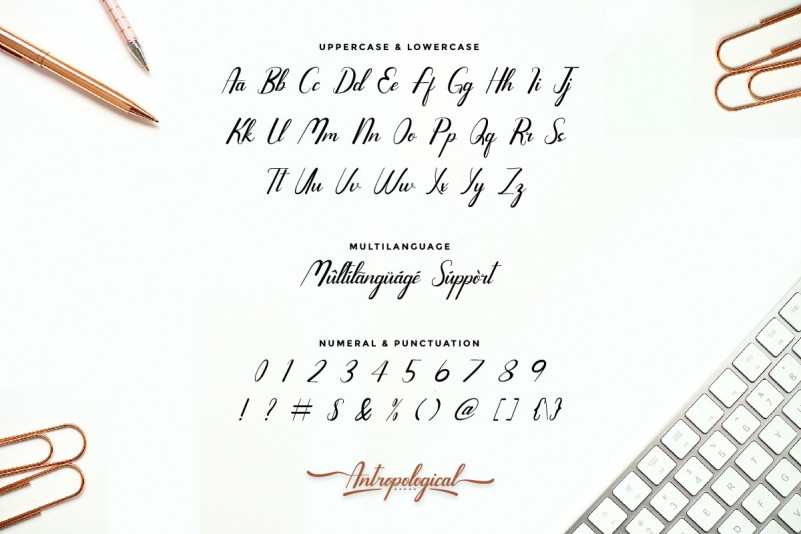 UPPERCASE & LOWERCASE
Aa Bb Cc Dd Ee Ff Gg Hh Ii Jj
Kk Ll Mm Nn Oo Pp Qq Rr Ss
Tt Uu Vv Ww Xx Yy Zz
MULTILANGUAGE
Múltilãngüágé Súppòrt
NUMERAL & PUNCTUATION
0 1 2 3 4 5 6 7 8 9
! ? # $ & % ( ) @ [ ] { \ }
Antropological